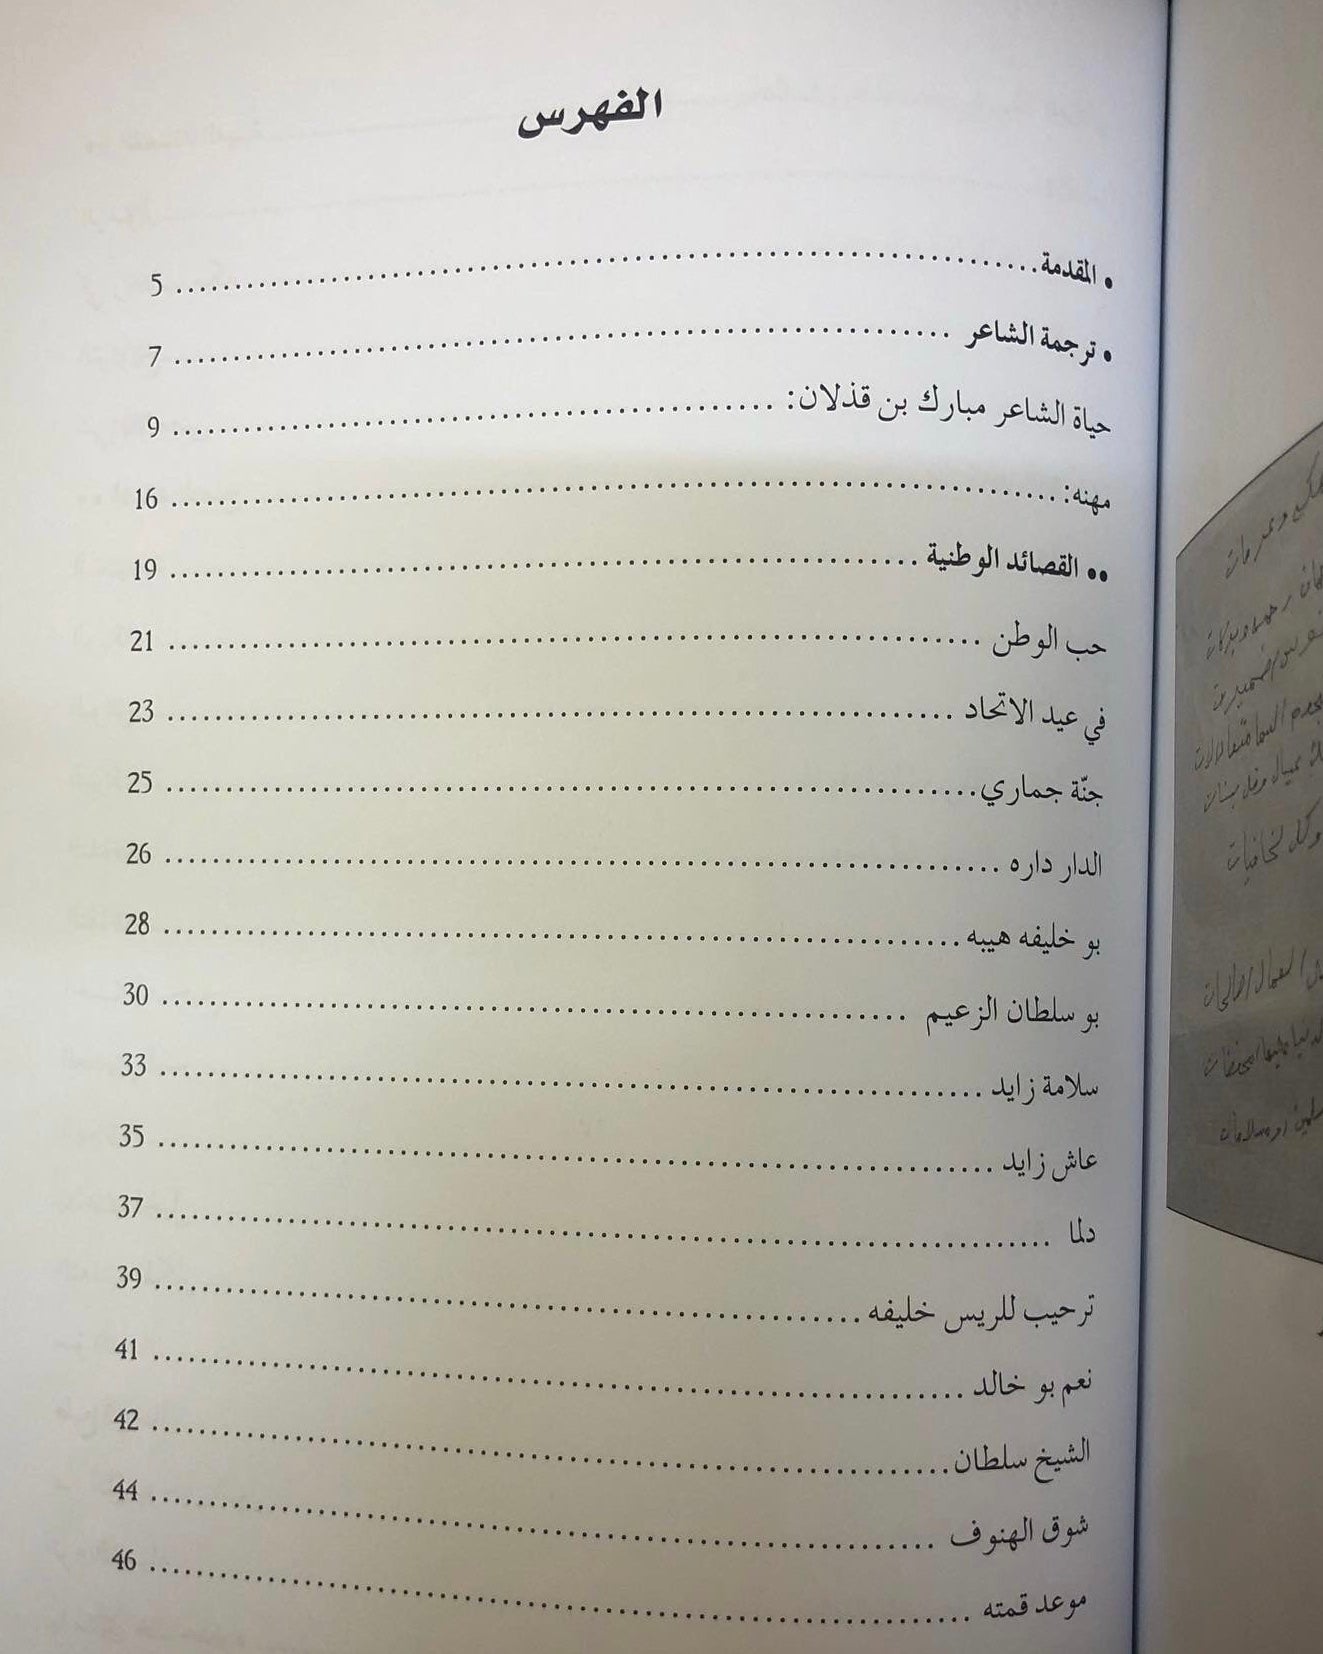 الفهرس
• المقدمة .......... 5
• ترجمة الشاعر .......... 7
حياة الشاعر مبارك بن قذلان: .......... 9
مهنه: .......... 16
•• القصائد الوطنية .......... 19
حب الوطن .......... 21
في عيد الاتحاد .......... 23
جنّة جماري .......... 25
الدار داره .......... 26
بو خليفه هيبه .......... 28
بو سلطان الزعيم .......... 30
سلامة زايد .......... 33
عاش زايد .......... 35
دلما .......... 37
ترحيب للريس خليفه .......... 39
نعم بو خالد .......... 41
الشيخ سلطان .......... 42
شوق الهنوف .......... 44
موعد قمته .......... 46